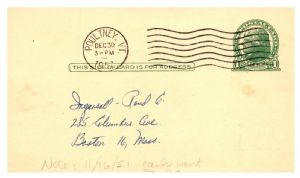 POULTNEY, VT.
DEC 30
3-PM
THIS SIDE OF CARD IS FOR ADDRESS
Ingersoll-Rand Co.
285 Columbus Ave.
Boston 16, Mass.
Note: 11/16/51 cards went